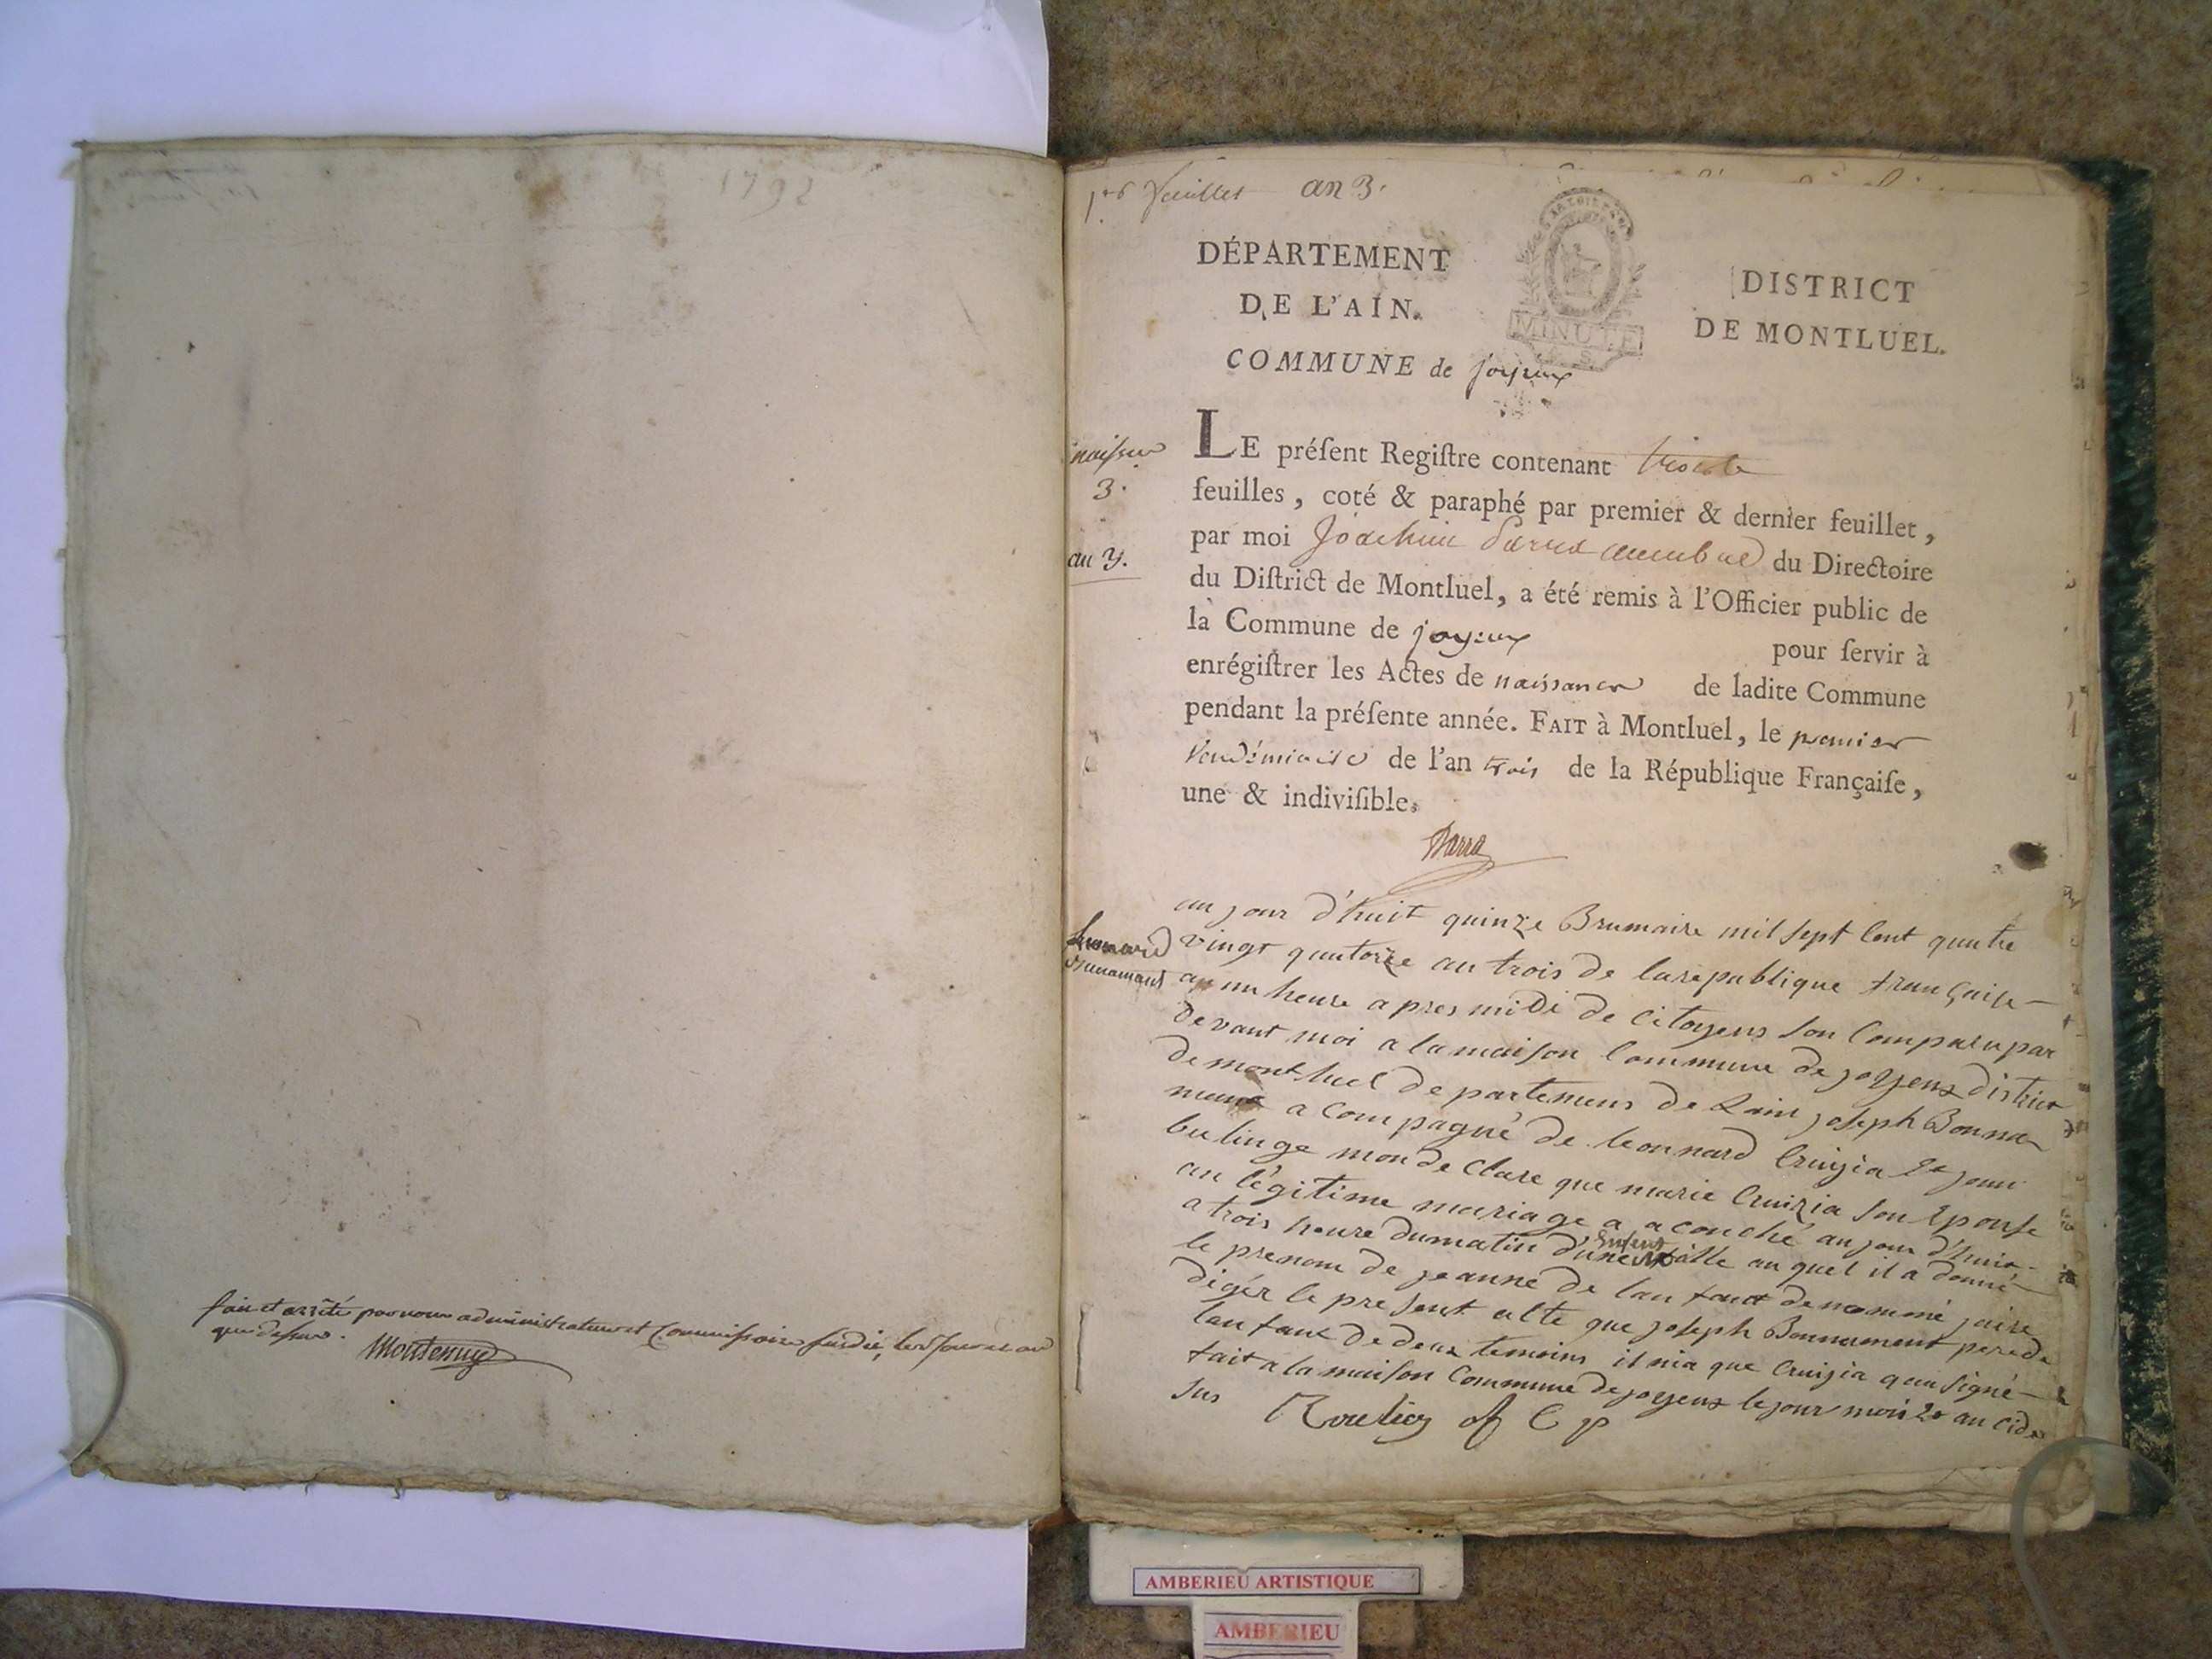 1792
fait et arrêté par nous administrateur et Commissaire susdit, les jour et an
que dessus.
Montenuy
1er feuillet an 3.
DÉPARTEMENT
DE L'AIN.
COMMUNE de joyeux
MINUTE
DISTRICT
DE MONTLUEL.
naissce
3.
an 3.
LE préſent Regiſtre contenant trente
feuilles, coté & paraphé par premier & dernier feuillet,
par moi Joachim membre du Directoire
du Diſtrict de Montluel, a été remis à l'Officier public de
la Commune de joyeux pour ſervir à
enrégiſtrer les Actes de naissance de ladite Commune
pendant la préſente année. FAIT à Montluel, le premier
Vendémiaire de l'an trois de la République Françaiſe,
une & indiviſible.
au jour d'huit quinze Brumaire mil sept Cent quatre
vingt quatorze an trois de la republique française
a un heure apres midi de Citoyens son Comparu par
devant moi a la maison Commune de joyeux district
de montluel departemens de Lain joseph Bonna
mant a Compagné de leonnard Cruizia &
mon de Clare que marie Cruizia son Epouse
an légitime mariage a a couché au jour d'huit
a trois heure du matin d'une Enfent au quel il a donné
le prenom de jeanne de lanfant denommé jaire
digér le present alte que joseph Bonnamant pere de
lanfant de deux temoins il nia que Cruizia qau signé
fait a la maison Commune de joyeux le jour mois & an cide
sus
of C p
AMBERIEU ARTISTIQUE
AMBERIEU